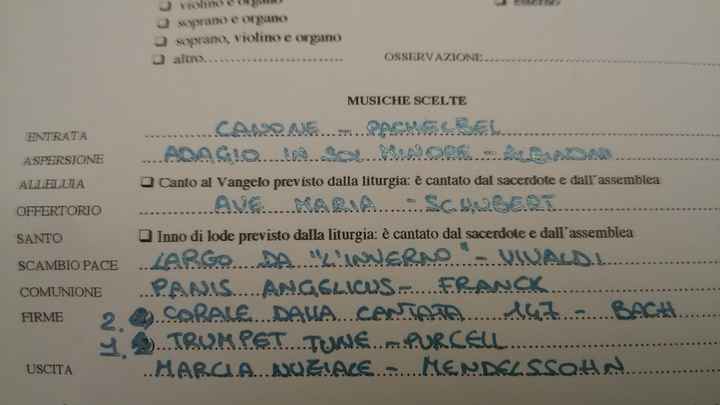 ❏ violino e organo
❏ esterno
❏ soprano e organo
❏ soprano, violino e organo
❏ altro.................................... OSSERVAZIONE....................................
MUSICHE SCELTE
ENTRATA CANONE - PACHELBEL
ASPERSIONE ADAGIO IN SOL MINORE - ALBINONI
ALLELUIA ❏ Canto al Vangelo previsto dalla liturgia: è cantato dal sacerdote e dall'assemblea
OFFERTORIO AVE MARIA - SCHUBERT
SANTO ❏ Inno di lode previsto dalla liturgia: è cantato dal sacerdote e dall'assemblea
SCAMBIO PACE LARGO DA "L'INVERNO" - VIVALDI
COMUNIONE PANIS ANGELICUS - FRANCK
FIRME 2. CORALE DALLA CANTATA 147 - BACH
1. TRUMPET TUNE - PURCELL
USCITA MARCIA NUZIALE - MENDELSSOHN